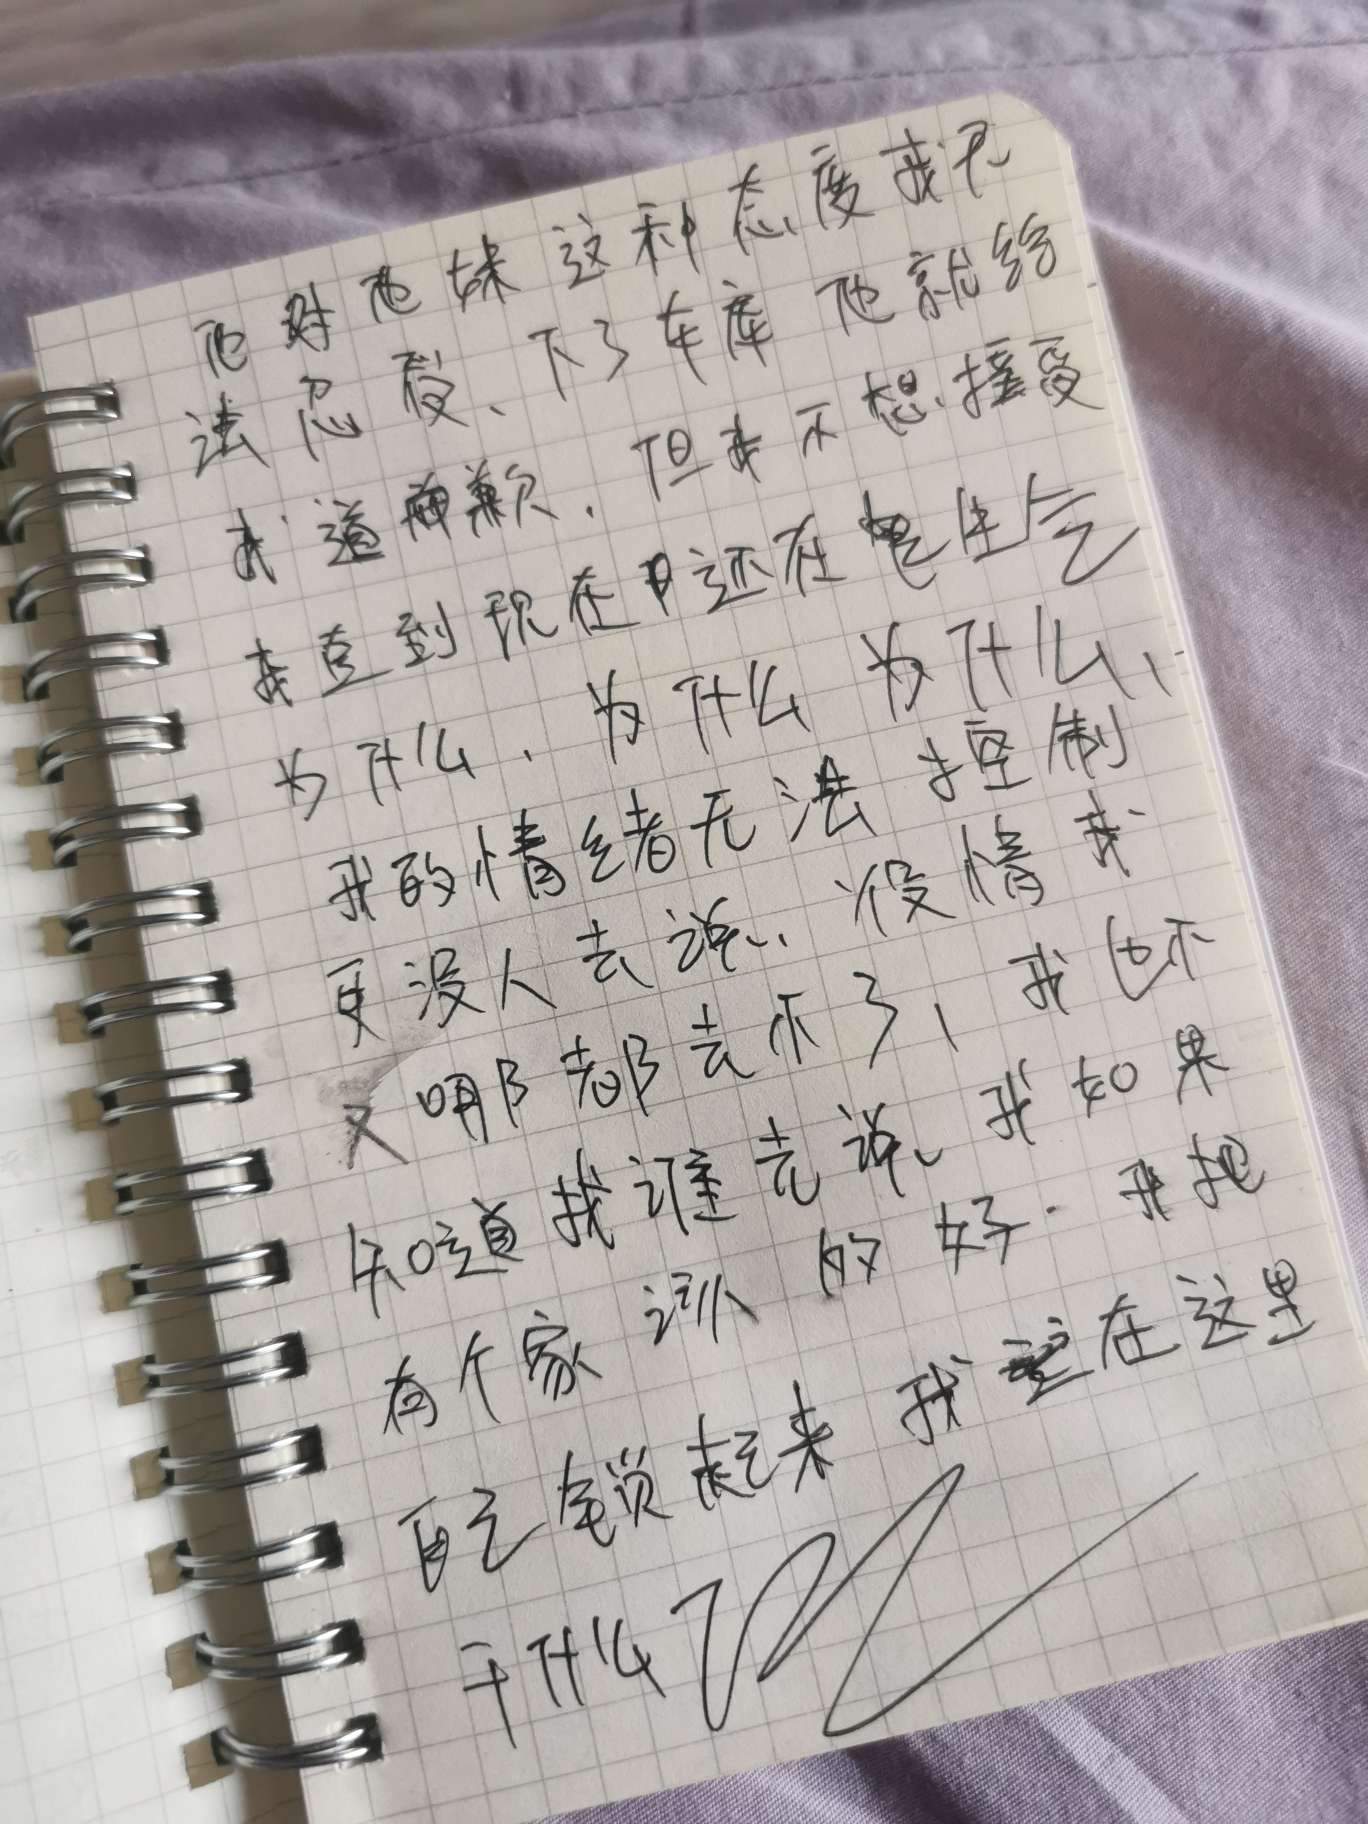 他对他妹这种态度我无
法忍受、下了车库他就给
我道歉.但我不想接受
我直到现在还在生气
为什么、为什么为什么、
我的情绪无法控制
更没人去说、疫情我
又哪都去不了、我也不
知道找谁去说、我如果
有个家 的好.我把
自己锁起来我在这里
干什么